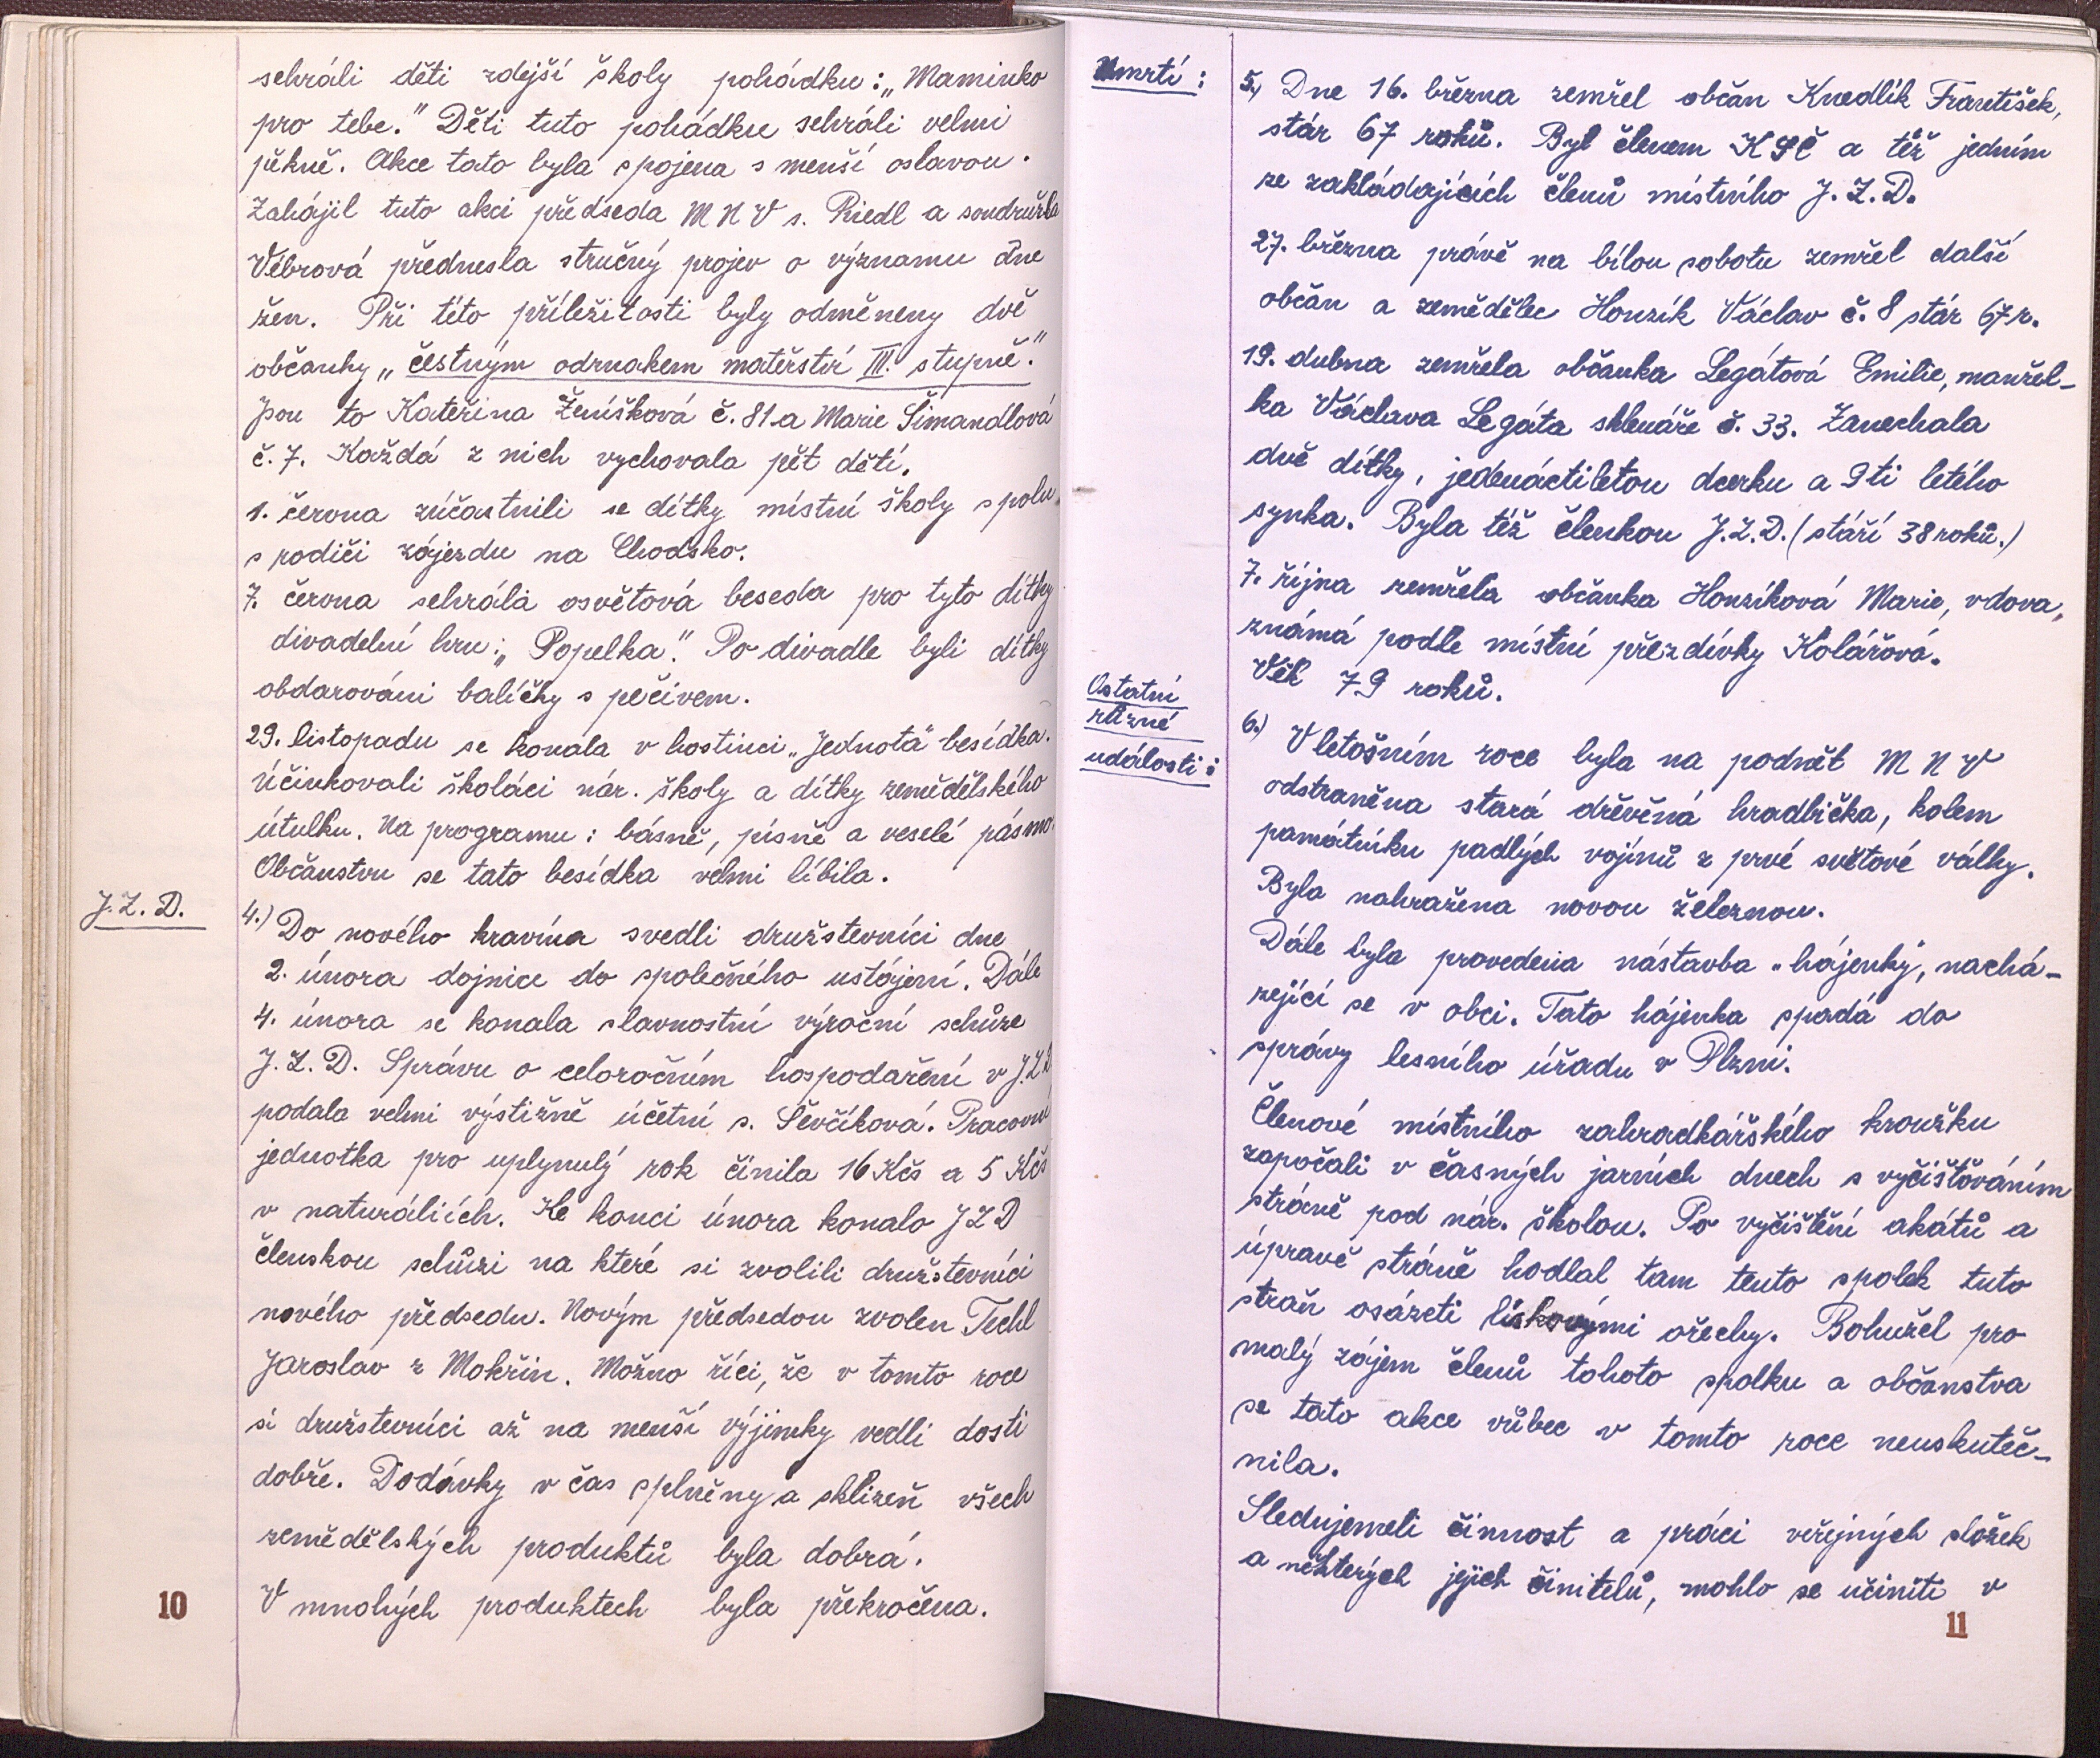 sehráli děti zdejší školy pohádku: „Maminko
pro tebe." Děti tuto pohádku sehráli velmi
pěkně. Akce tato byla spojena s menší oslavou.
Zahájil tuto akci předseda MNV s. Riedl a soudružka
Vébrová přednesla stručný projev o významu dne
žen. Při této příležitosti byly odměneny dvě
občanky „čestným odznakem mateřství III. stupně."
Jsou to Kateřina Ženíšková č. 81 a Marie Šimandlová
č. 7. Každá z nich vychovala pět dětí.
1. června zúčastnili se dítky místní školy spolu
s rodiči zájezdu na Chodsko.
7. června sehrála osvětová beseda pro tyto dítky
divadelní hru: „Popelka". Po divadle byli dítky
obdarováni balíčky s pečivem.
29. listopadu se konala v hostinci „Jednota" besídka.
Účinkovali školáci nár. školy a dítky zemědělského
útulku. Na programu: básně, písně a veselé pásmo.
Občanstvu se tato besídka velmi líbila.
J.Z.D.
4.) Do nového kravína svedli družstevníci dne
2. února dojnice do společného ustájení. Dále
4. února se konala slavnostní výroční schůze
J.Z.D. Správu o celoročním hospodaření v J.Z.D
podala velmi výstižně účetní s. Ševčíková. Pracovní
jednotka pro uplynulý rok činila 16 Kčs a 5 Kčs
v naturáliích. Ke konci února konalo JZD
členskou schůzi na které si zvolili družstevníci
nového předsedu. Novým předsedou zvolen Techl
Jaroslav z Mokřin. Možno říci, že v tomto roce
si družstevníci až na menší výjimky vedli dosti
dobře. Dodávky v čas splněny a sklizeň všech
zemědělských produktů byla dobrá.
V mnohých produktech byla překročena.
10
Úmrtí:
5.) Dne 16. března zemřel občan Knedlík František,
stár 67 roků. Byl členem KSČ a též jedním
ze zakládajících členů místního J.Z.D.
27. března právě na bílou sobotu zemřel další
občan a zemědělec Honzík Václav č. 8 stár 67 r.
19. dubna zemřela občanka Legátová Emilie, manžel-
ka Václava Legáta sklenáře č. 33. Zanechala
dvě dítky, jedenáctiletou dcerku a 9ti letého
synka. Byla též členkou J.Z.D. (stáří 38 roků.)
7. října zemřela občanka Honzíková Marie, vdova,
známá podle místní přezdívky Kolářová.
Věk 79 roků.
Ostatní
různé
události:
6.) V letošním roce byla na podnět MNV
odstraněna stará dřevěná hradbička, kolem
památníku padlých vojínů z prvé světové války.
Byla nahražena novou železnou.
Dále byla provedena nástavba „hájenky", nachá-
zející se v obci. Tato hájenka spadá do
správy lesního úřadu v Plzni.
Členové místního zahradkářského kroužku
započali v časných jarních dnech s vyčišťováním
stráně pod nár. školou. Po vyčištění akátů a
úpravě stráně hodlal tam tento spolek tuto
straň osázeti lískovými ořechy. Bohužel pro
malý zájem členů tohoto spolku a občanstva
se tato akce vůbec v tomto roce neuskuteč-
nila.
Sledujemeli činnost a práci veřejných složek
a některých jejich činitelů, mohlo se učiniti v
11